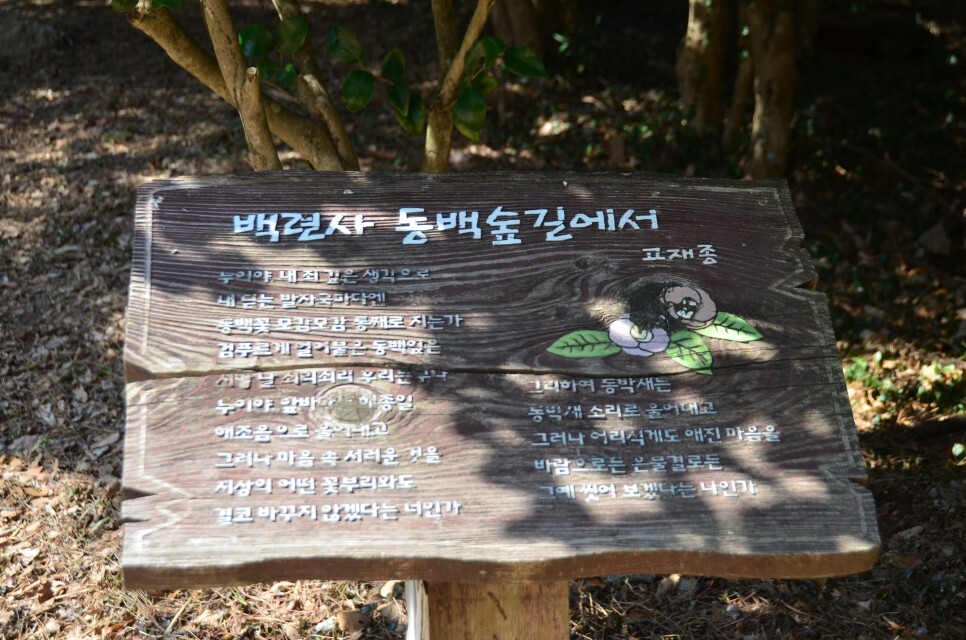 백련사 동백숲길에서
고재종
누이야 내 죄 깊은 생각으로
내 딛는 발자국마다엔
동백꽃 모감모감 통째로 지는가
검푸르게 얼어붙은 동백잎은
날 쇠리쇠리
누이야 해종일
해조음으로 울어대고
그러나 마음 속 서러운 것을
지상의 어떤 꽃부리와도
결코 바꾸지 않겠다는 너인가
그리하여 동박새는
동박새 소리로 울어대고
그러나 어리석게도 애진 마음을
바람으로든 은물결로든
그예 씻어 보겠다는 나인가